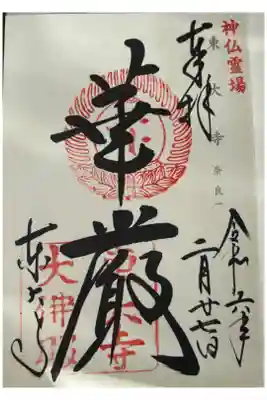 神仏霊場
東大寺 奈良一
奉拝
令和六年
二月廿七日
華厳
東大寺
大佛殿
東大寺